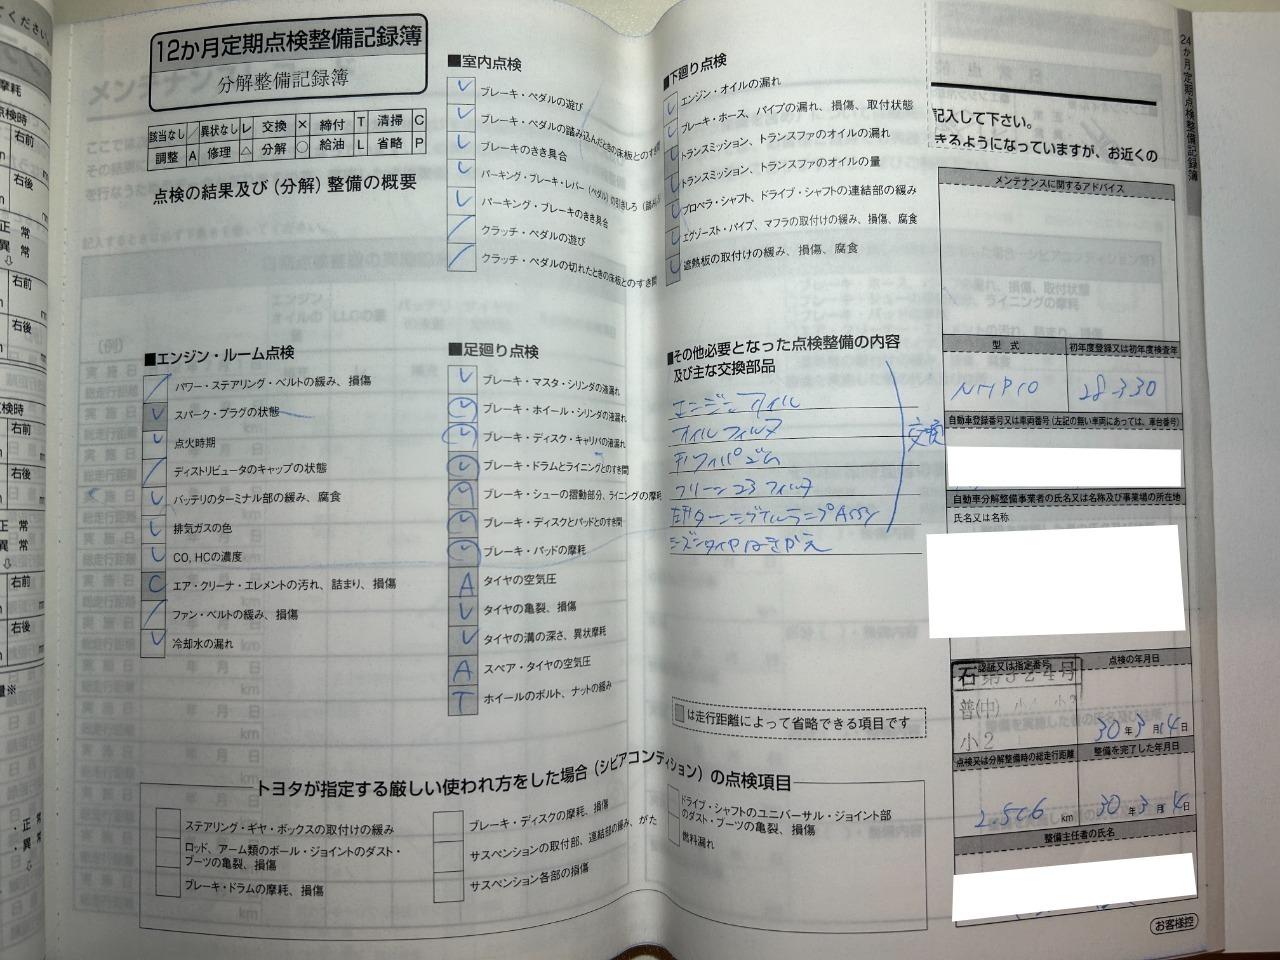 12か月定期点検整備記録簿
分解整備記録簿
該当なし ／ 異状なし レ 交換 × 締付 T 清掃 C
調整 A 修理 △ 分解 ○ 給油 L 省略 P
点検の結果及び（分解）整備の概要
■エンジン・ルーム点検
／ パワー・ステアリング・ベルトの緩み、損傷
レ スパーク・プラグの状態
レ 点火時期
／ ディストリビュータのキャップの状態
レ バッテリのターミナル部の緩み、腐食
レ 排気ガスの色
レ CO, HCの濃度
C エア・クリーナ・エレメントの汚れ、詰まり、損傷
／ ファン・ベルトの緩み、損傷
レ 冷却水の漏れ
■室内点検
レ ブレーキ・ペダルの遊び
レ ブレーキ・ペダルの踏み込んだときの床板とのすき間
レ ブレーキのきき具合
レ パーキング・ブレーキ・レバー（ペダル）の引きしろ（踏み
レ パーキング・ブレーキのきき具合
／ クラッチ・ペダルの遊び
／ クラッチ・ペダルの切れたときの床板とのすき間
■足廻り点検
レ ブレーキ・マスタ・シリンダの液漏れ
ブレーキ・ホイール・シリンダの液漏れ
ブレーキ・ディスク・キャリパの液漏れ
ブレーキ・ドラムとライニングとのすき間
ブレーキ・シューの摺動部分、ライニングの摩耗
ブレーキ・ディスクとパッドとのすき間
ブレーキ・パッドの摩耗
A タイヤの空気圧
レ タイヤの亀裂、損傷
レ タイヤの溝の深さ、異状摩耗
A スペア・タイヤの空気圧
T ホイールのボルト、ナットの緩み
■下廻り点検
レ エンジン・オイルの漏れ
レ ブレーキ・ホース、パイプの漏れ、損傷、取付状態
レ トランスミッション、トランスファのオイルの漏れ
レ トランスミッション、トランスファのオイルの量
レ プロペラ・シャフト、ドライブ・シャフトの連結部の緩み
レ エグゾースト・パイプ、マフラの取付けの緩み、損傷、腐食
レ 遮熱板の取付けの緩み、損傷、腐食
■その他必要となった点検整備の内容
及び主な交換部品
エンジンオイル
オイルフィルタ
ワイパーゴム
クリーンエアフィルタ
ターンシグナルランプAssy
交換
シーズンタイヤはきかえ
は走行距離によって省略できる項目です
トヨタが指定する厳しい使われ方をした場合（シビアコンディション）の点検項目
ステアリング・ギヤ・ボックスの取付けの緩み
ロッド、アーム類のボール・ジョイントのダスト・
ブーツの亀裂、損傷
ブレーキ・ドラムの摩耗、損傷
ブレーキ・ディスクの摩耗、損傷
サスペンションの取付部、連結部の緩み、がた
サスペンション各部の損傷
ドライブ・シャフトのユニバーサル・ジョイント部
のダスト・ブーツの亀裂、損傷
燃料漏れ
記入して下さい。
きるようになっていますが、お近くの
24か月定期点検整備記録簿
メンテナンスに関するアドバイス
型 式 初年度登録又は初年度検査年
NHP10 28 3.30
自動車登録番号又は車両番号（左記の無い車両にあっては、車台番号）
自動車分解整備事業者の氏名又は名称及び事業場の所在地
氏名又は名称
認証又は指定番号 点検の年月日
石第524号
普(中)
小2
30年3月14日
点検又は分解整備時の総走行距離 整備を完了した年月日
km 30年3月14日
整備主任者の氏名
お客様控